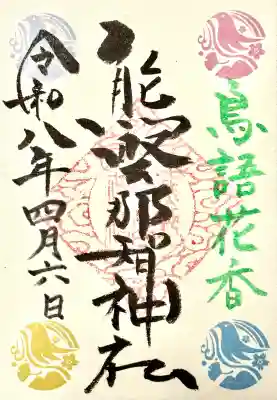 鳥語花香
熊野那智神社
令和八年四月六日